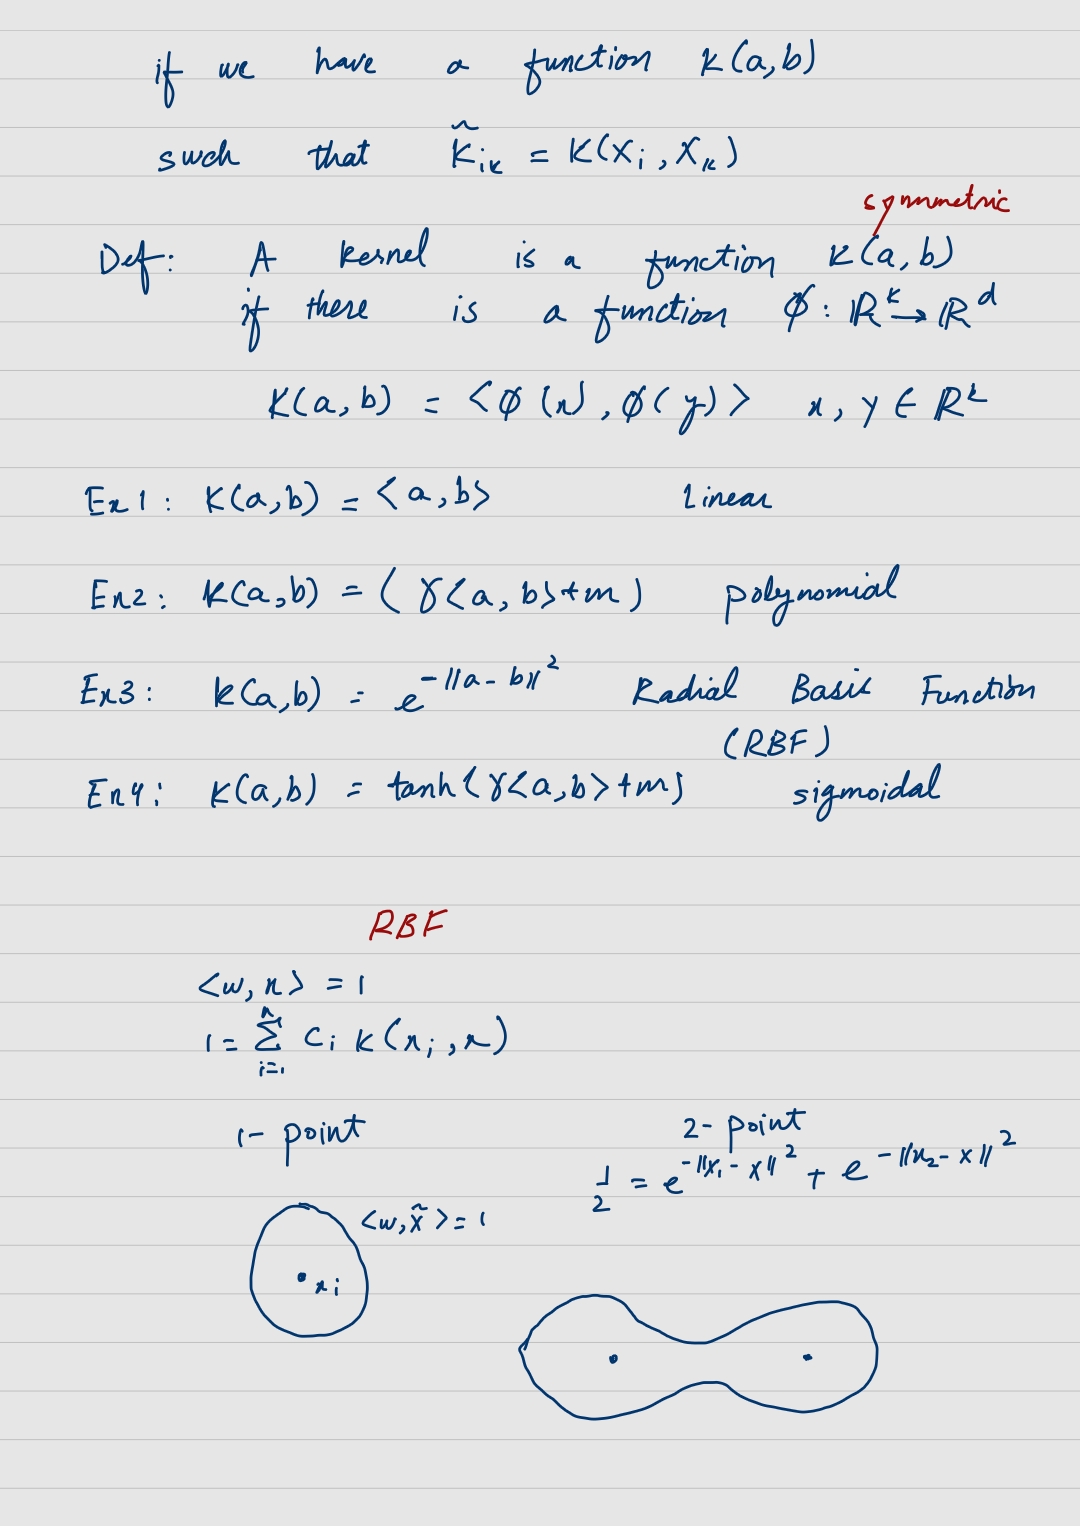 if we have a function K(a,b)
such that K̃ᵢₖ = K(Xᵢ, Xₖ)
symmetric
Def: A kernel is a function K(a,b)
if there is a function ϕ: ℝᵏ → ℝᵈ
K(a,b) = <ϕ(x), ϕ(y)> x, y ∈ ℝᵏ
Ex1: K(a,b) = <a,b> Linear
Ex2: K(a,b) = (γ<a,b>+m) polynomial
Ex3: K(a,b) = e^-||a-b||² Radial Basic Function
(RBF)
Ex4: K(a,b) = tanh(γ<a,b>+m) sigmoidal
RBF
<w,x> = 1
1 = Σᵢ₌₁ⁿ Cᵢ K(xᵢ, x)
1- point 2- point
1/2 = e^-||x₁-x||² + e^-||x₂-x||²
<w,x̃> = 1
xᵢ